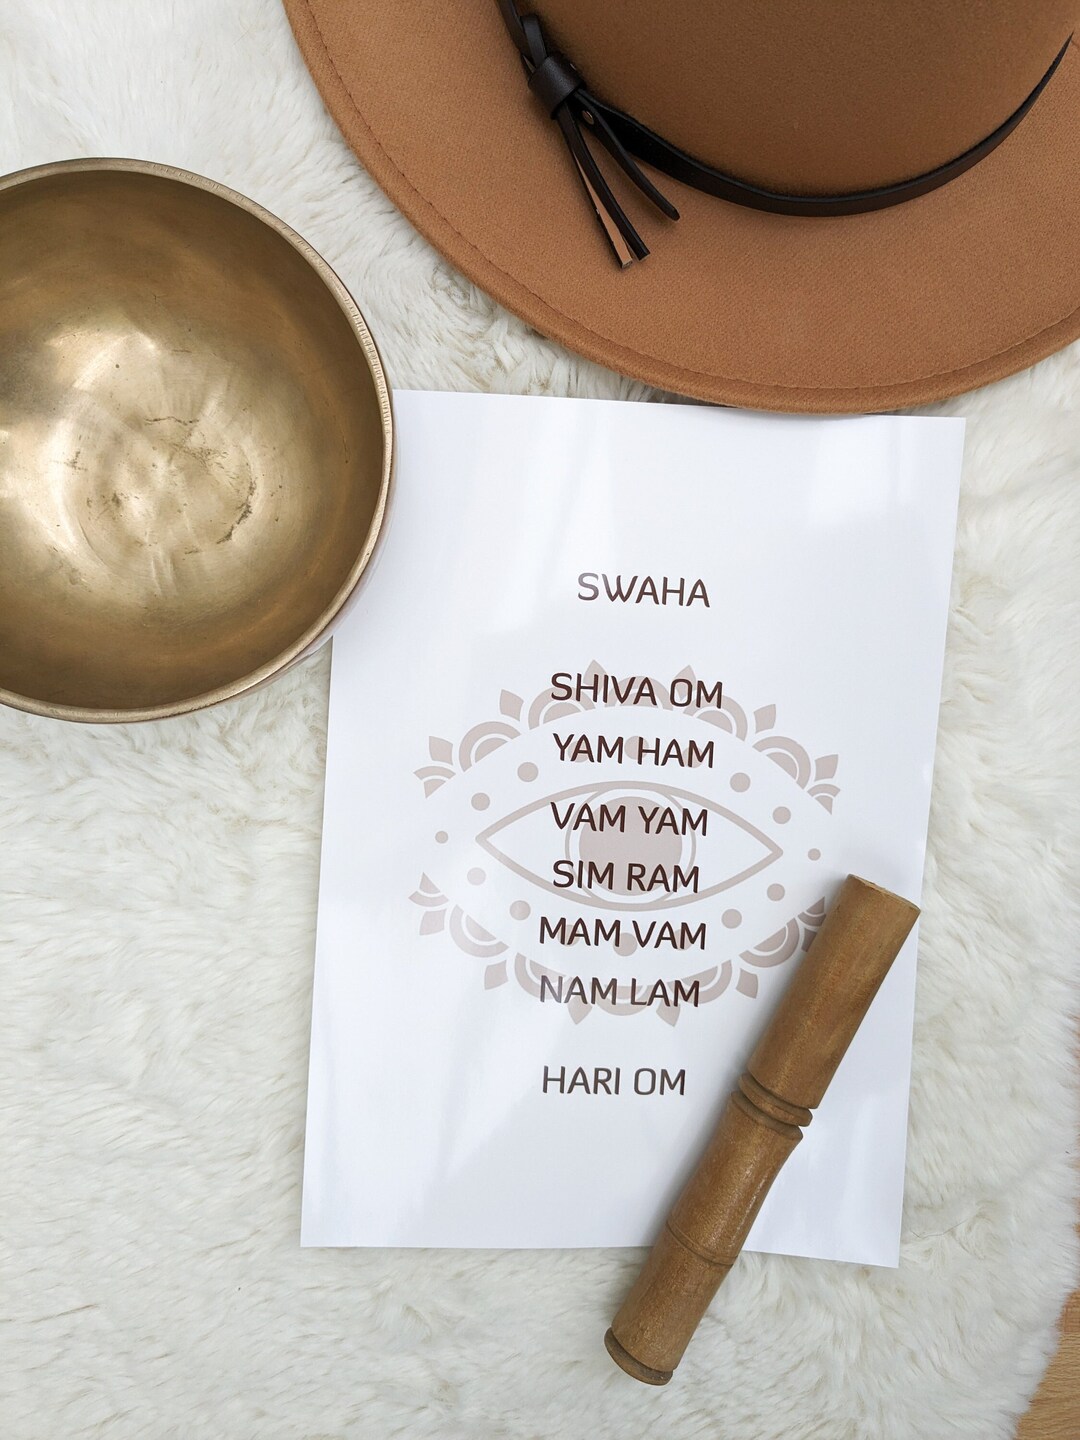 SWAHA
SHIVA OM
YAM HAM
VAM YAM
SIM RAM
MAM VAM
NAM LAM
HARI OM